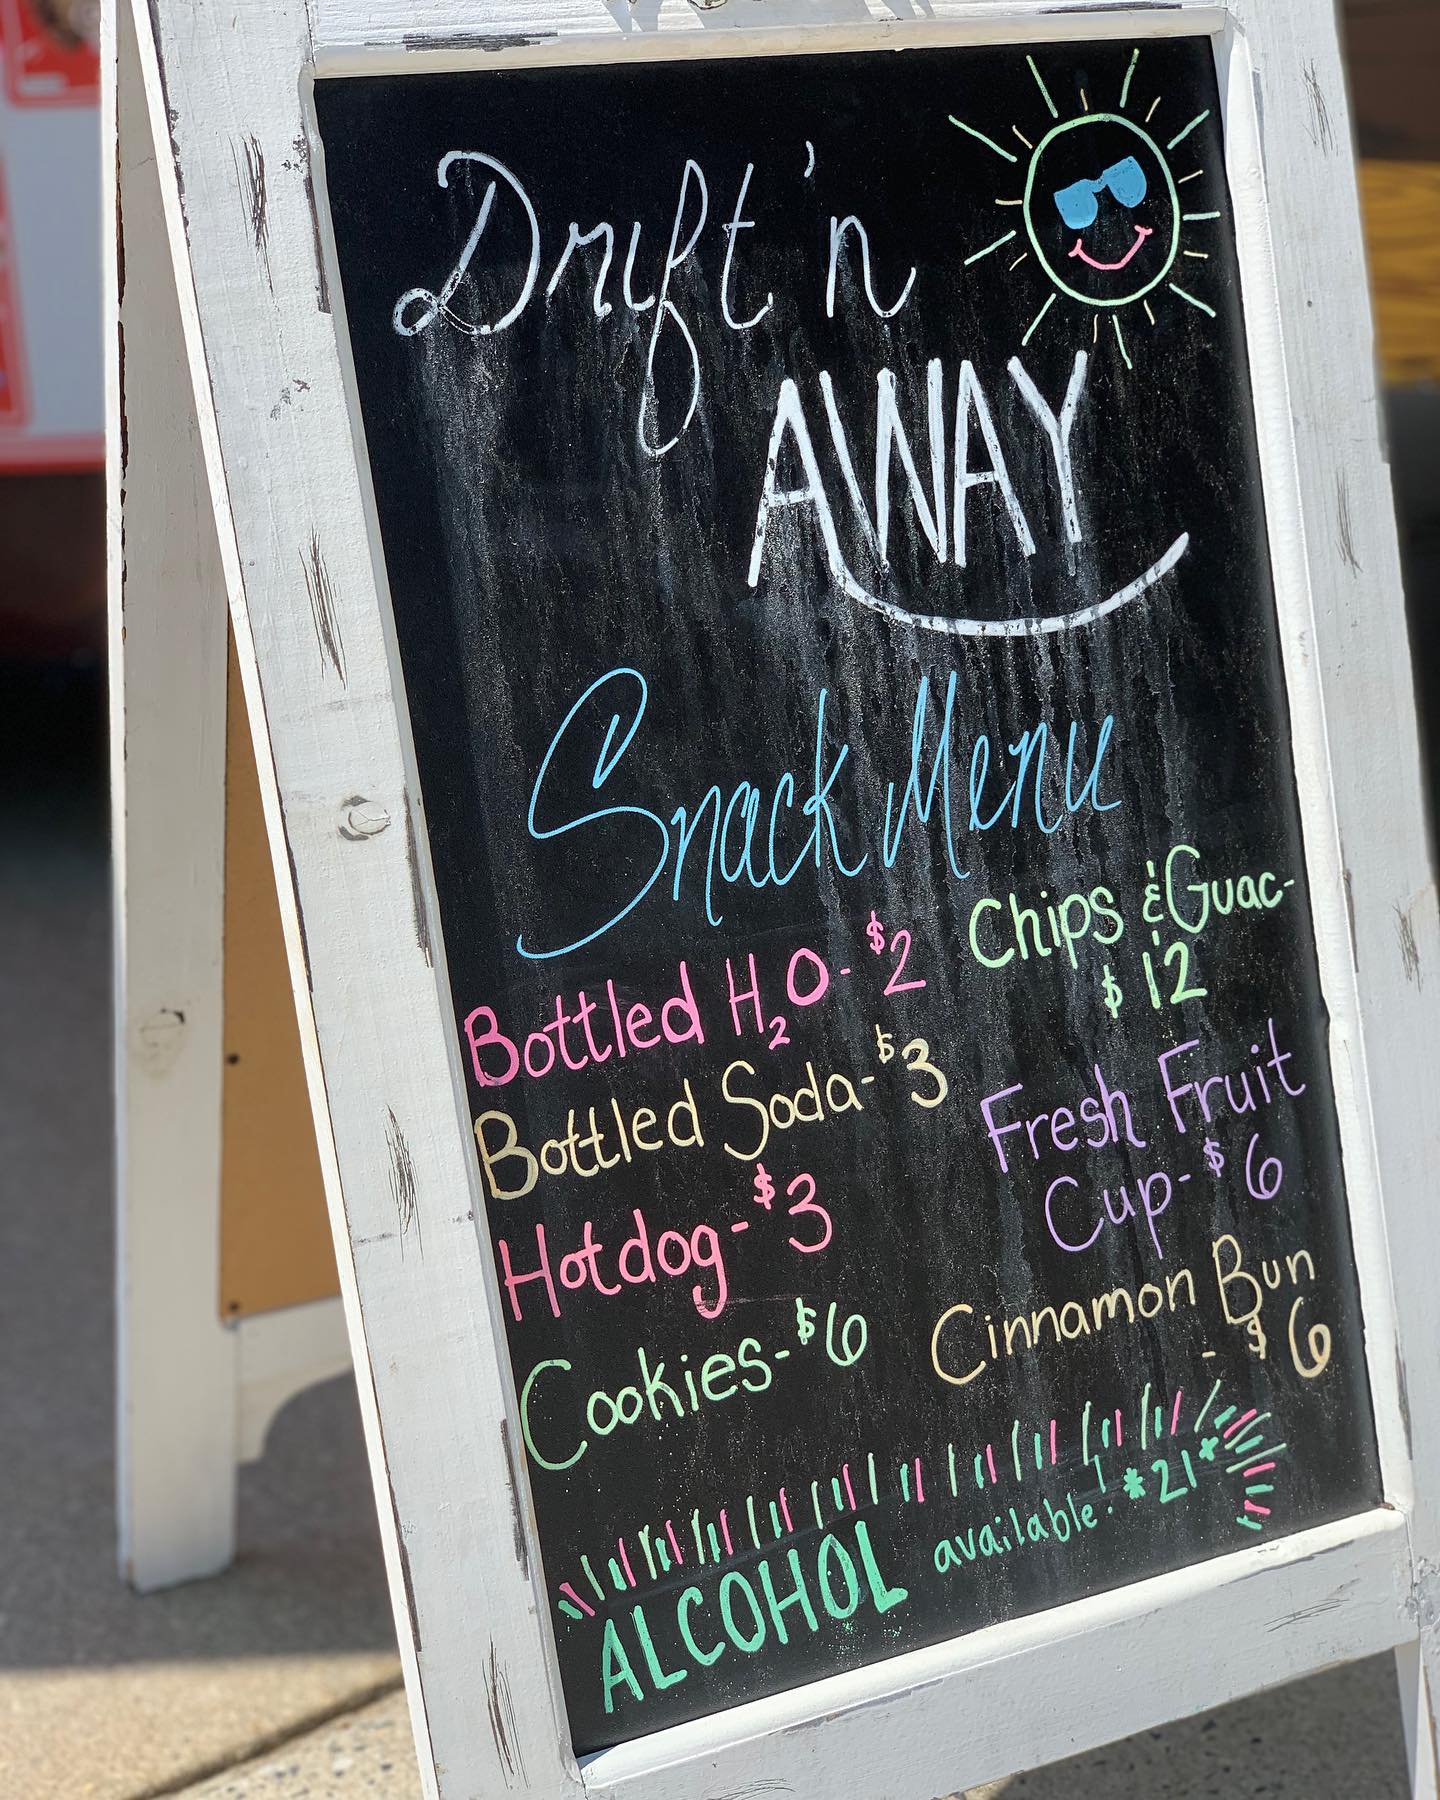 Drift'n
AWAY
Snack Menu
Bottled H₂O - $2
Bottled Soda - $3
Hotdog - $3
Cookies - $6
Chips & Guac -
$12
Fresh Fruit
Cup - $6
Cinnamon Bun
- $6
ALCOHOL available! *21*